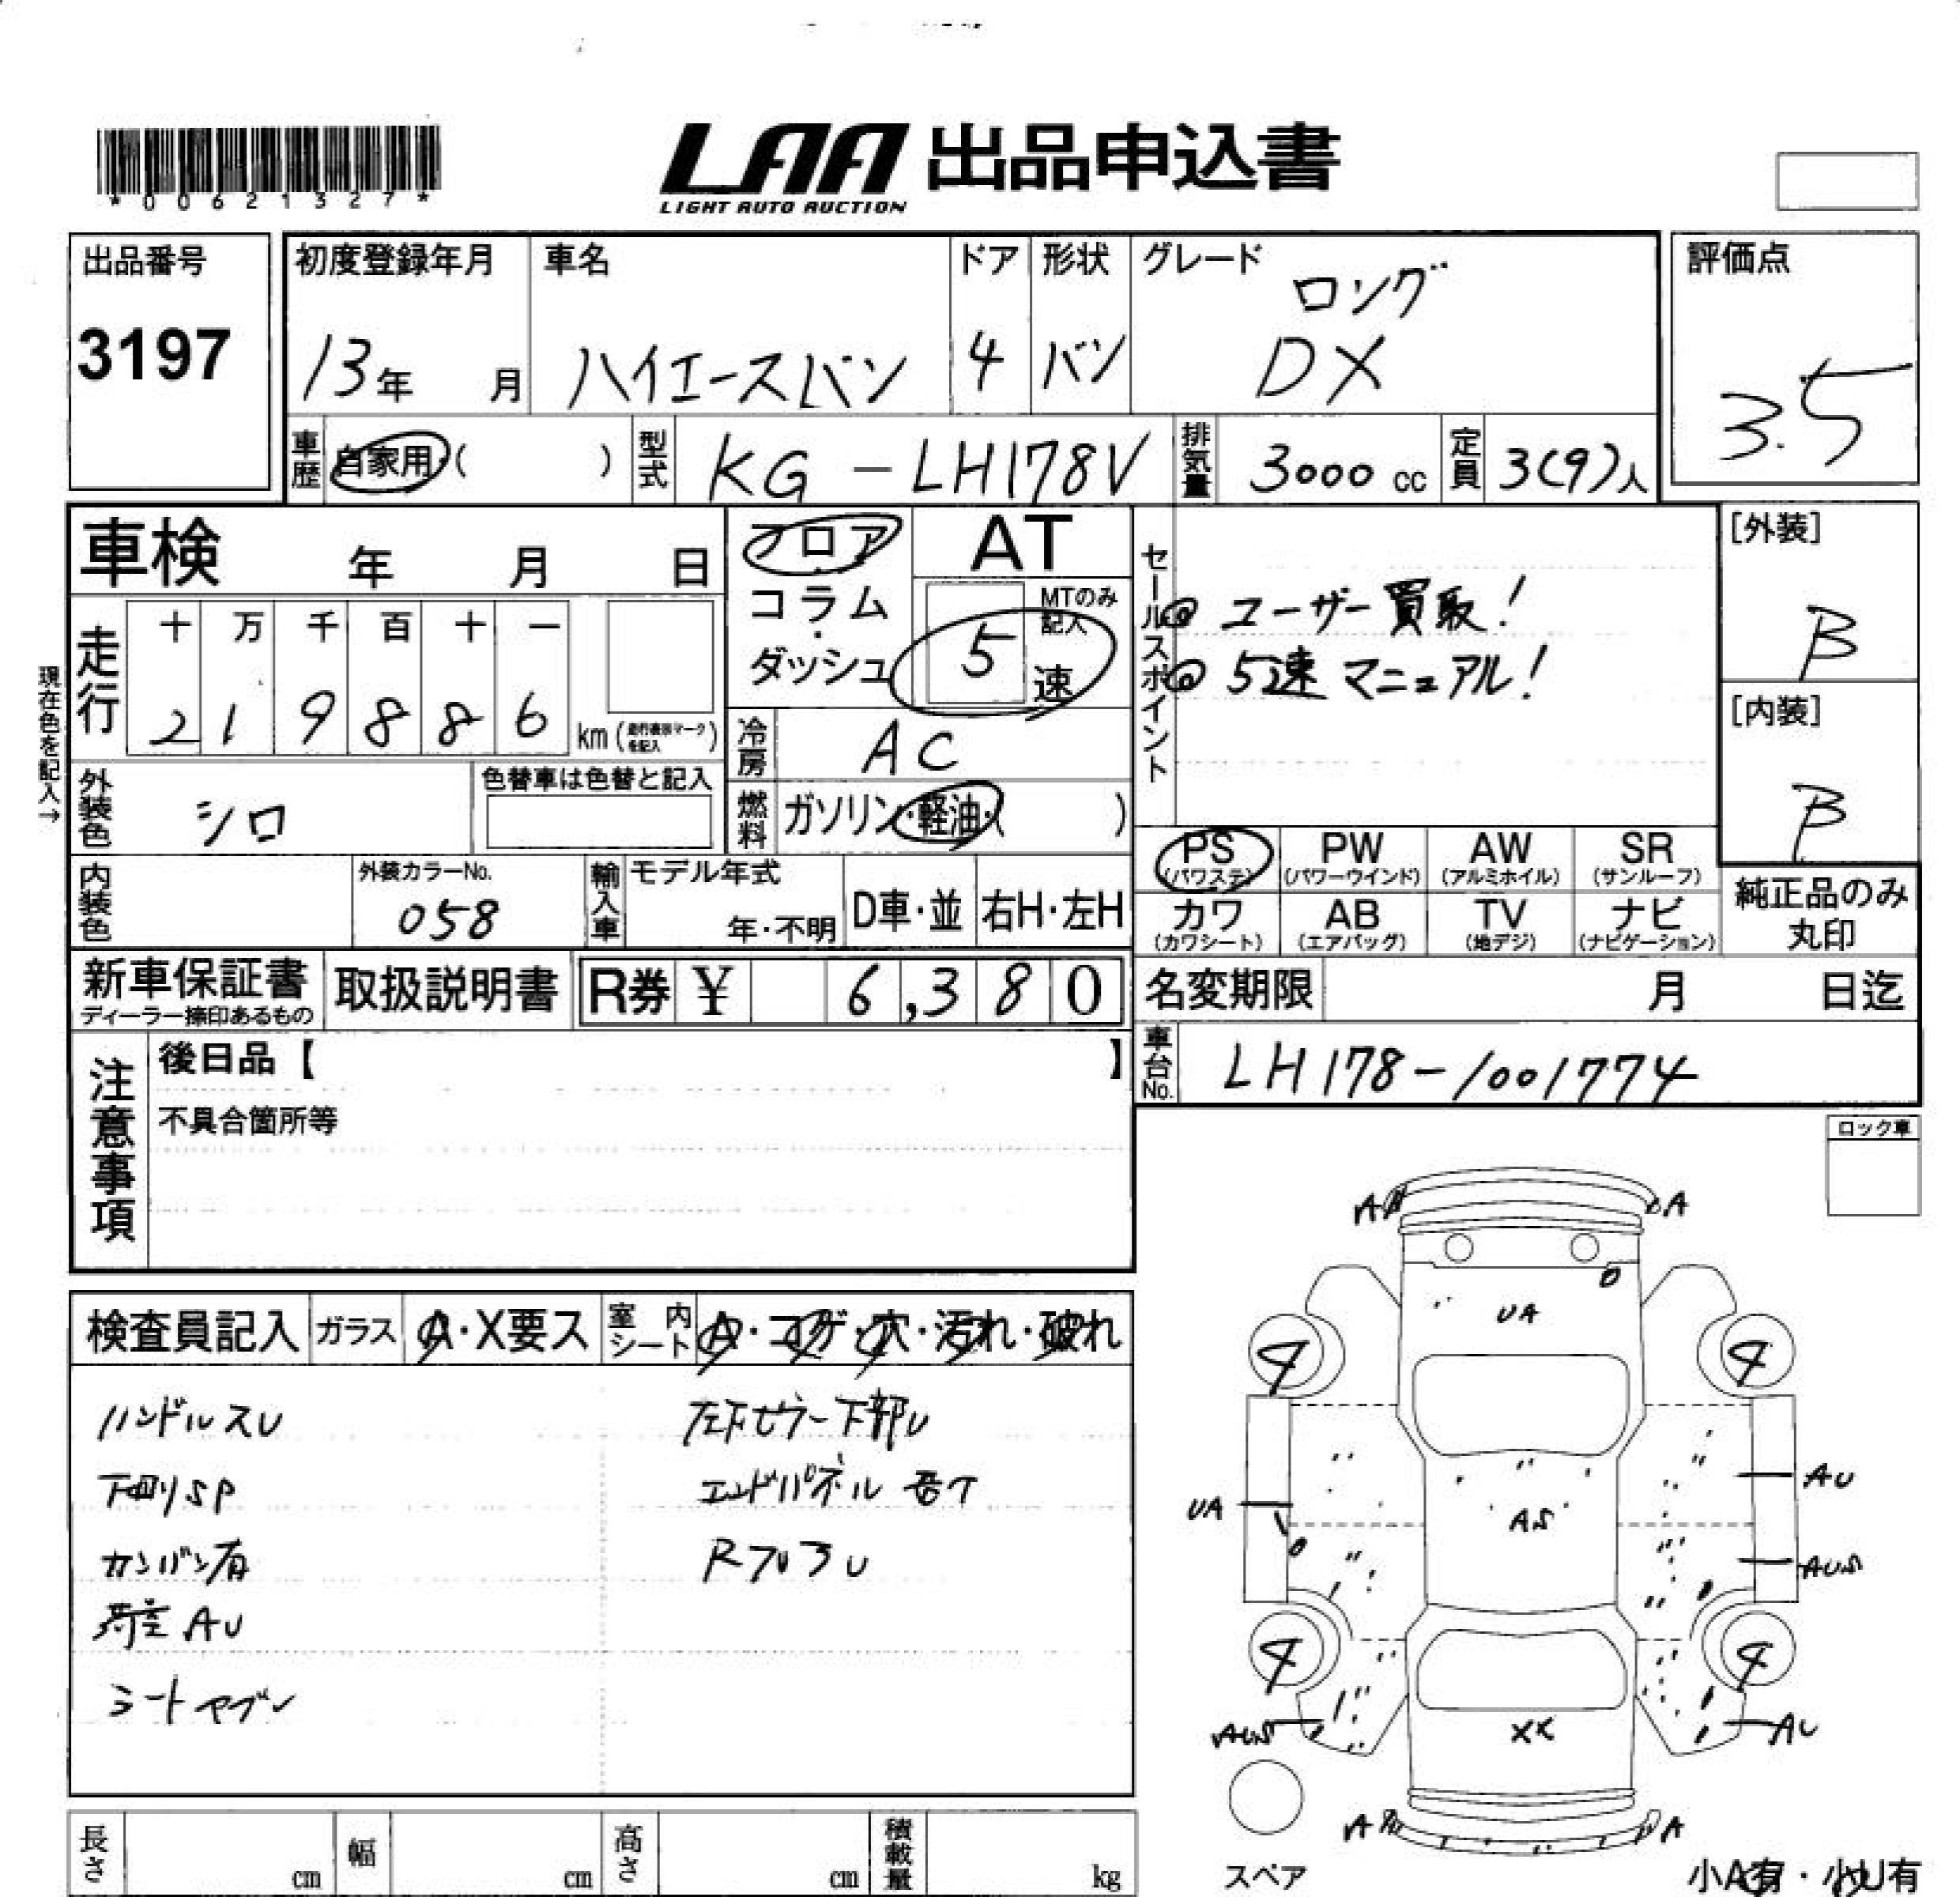 *00621327*
LAA 出品申込書
LIGHT AUTO AUCTION
出品番号
3197
初度登録年月 車名 ドア 形状 グレード
13年 月 ハイエースバン 4 バン ロング
DX
評価点
3.5
車歴 自家用・( ) 型式 KG-LH178V 排気量 3000 cc 定員 3(9)人
車検 年 月 日
フロア
コラム
・
ダッシュ
AT
MTのみ記入
5 速
走行 十 万 千 百 十 一
2 1 9 8 8 6 km
現在色を記入→
冷房 AC
燃料 ガソリン・軽油・( )
セールスポイント
◎ ユーザー買取!
◎ 5速マニュアル!
[外装]
B
[内装]
B
外装色 シロ
色替車は色替と記入
内装色
外装カラーNo.
058
輸入車 モデル年式
年・不明 D車・並 右H・左H
PS (パワステ) PW (パワーウインド) AW (アルミホイル) SR (サンルーフ)
カワ (カワシート) AB (エアバッグ) TV (地デジ) ナビ (ナビゲーション)
純正品のみ
丸印
新車保証書
ディーラー捺印あるもの
取扱説明書 R券 ¥ 6,380
名変期限 月 日迄
車台No. LH178-1001774
注意事項
後日品【 】
不具合箇所等
ロック車
検査員記入 ガラス A・X要ス 室内シート A・コゲ・穴・汚れ・破れ
ハンドルスレ
下回りSP
カンバン有
荷室 AU
シートヤブレ
左Fピラー下部U
エンドパネル
RフロアU
A A
UA
4 4
AU
UA AS
AUS
4 4
AUS XX AU
A A
スペア
小A有・小U有
長さ cm 幅 cm 高さ cm 積載量 kg